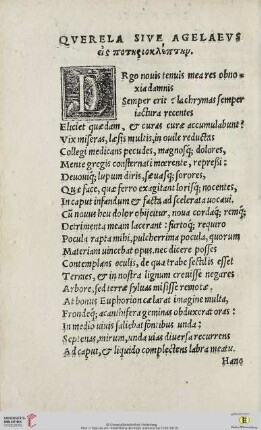 QVERELA SIVE AGELAEVS
εἰς ποτηριοκλέπτην.
DRgo nouis tenuis mea res obno-
xia damnis
Semper erit? & lachrymas semper
iactura recentes
Eliciet quædam, & curas curæ accumulabunt?
Vix miseras, læsis multis, in ouile reductas
Collegi medicans pecudes, magnosq; dolores,
Mente gregis consternati mœrente, repressi:
Deuouiq; lupum diris, sæuasq; sorores,
Quæ face, quæ ferro exagitant lorisq; nocentes,
In caput infandum & facta ad scelerata uocaui.
Cū nouus heu dolor obijcitur, noua cordaq; remq́;
Detrimenta meam lacerant: furtoq; requiro
Pocula rapta mihi, pulcherrima pocula, quorum
Materiam uincebat opus. nec dicere posses
Contemplans oculis, de qua trabe sectilis esset
Termes, & in nostra lignum creuisse negares
Arbore, sed terræ syluas misisse remotæ.
At bonus Euphorion cælarat imagine multa,
Frondeq; acanthi fera geminas obduxerat oras:
In medio uani saliebat fontibus unda:
Septenas, mirum, unda uias diuersa recurrens
Ad caput, & liquido complectens labra meatu.
Hanc